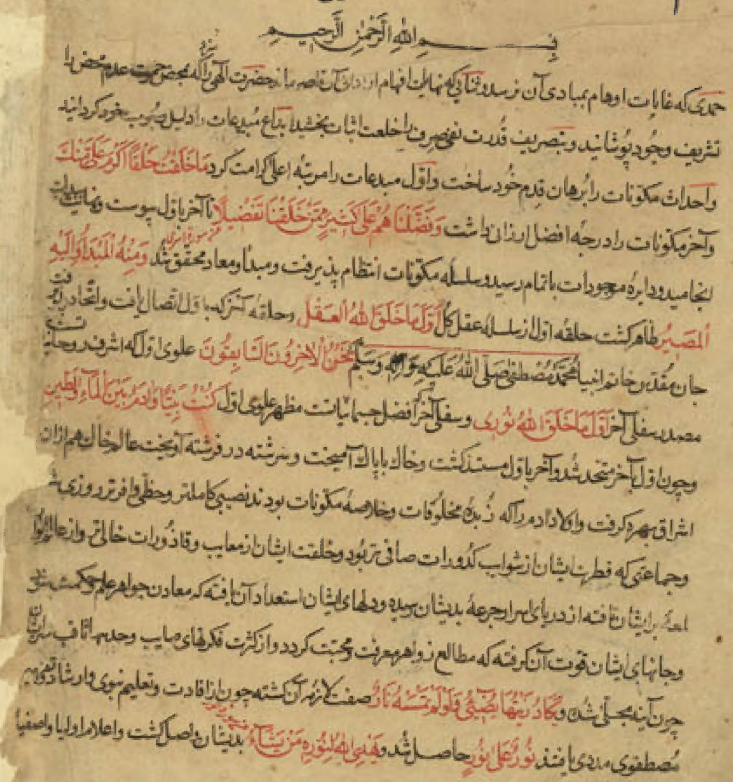 بسم الله الرحمن الرحیم
حمدی که غایات اوهام بمبادی آن نرسد و ثنایی که نهایات افهام از ادراک آن قاصر ماند حضرت الهی را که بمحض رحمت عدم محض را
تشریف وجود پوشانید و بتصریف قدرت نفی صرف را خلعت اثبات بخشید ابداع مبدعات را دلیل خود کردانید
واحداث مکونات را برهان قدم خود ساخت و اول مبدعات را مرتبه اعلی کرامت کرد ما خلقت خلقا اکرم علی منک
وآخر مکونات را درجه افضل ارزان داشت وفضلناهم علی کثیر ممن خلقنا تفضیلا تا آخر باول پیوست و نهایت
انجامید و دایره موجودات باتمام رسید و سلسله مکونات انتظام پذیرفت و مبدأ و معاد محقق شد ومنه المبدأ والیه
المصیر ظاهر کشت حلقه اول از سلسله عقل کل اول ما خلق الله العقل وحلقه آخر که باول اتصال یافت و اتحاد
جان مقدس خاتم انبیا محمد مصطفی صلی الله علیه وآله وسلم نحن الآخرون السابقون علوی اول که اشرف روحانیات
مصدر سفلی آخر اول ما خلق الله نوری وسفلی آخر که افضل جسمانیات مظهر علوی اول کنت نبیا وآدم بین الماء والطین
وچون اول بآخر متحد شد و آخر باول مستند کشت وخاك با پاك آمیخت و سرشته در فرشته آویخت عالم خاك هم ازان
اشراق بهره کرفت واولاد آدم را که زبده مخلوقات وخلاصه مکونات بودند نصیبی کاملتر وحظی وافرتر روزی شد
وجماعتی که فطرت ایشان از شوایب کدورات صافی تر بود وخلقت ایشان از معایب وقاذورات خالی تر واز عالم
ایشان تافته از دریای اسرار جرعه بدیشان رسیده ودلهای ایشان استعداد آن یافته که معادن جواهر علم وحکمت شود
وجانهای ایشان قوت آن کرفته که مطالع زواهر معرفت ومحبت کردد واز کثرت فکرهای صایب وحدسهای ثاقب
چون آینه مجلی شده و یکاد زیتها یضیئ ولو لم تمسسه نار صفت لازمه آن کشته چون از افادت وتعلیم نبوی وارشاد
مصطفوی مددی یافتند نور علی نور حاصل شد و یهدی الله لنوره من یشاء بدیشان واصل کشت واعلام اولیا واصفیا